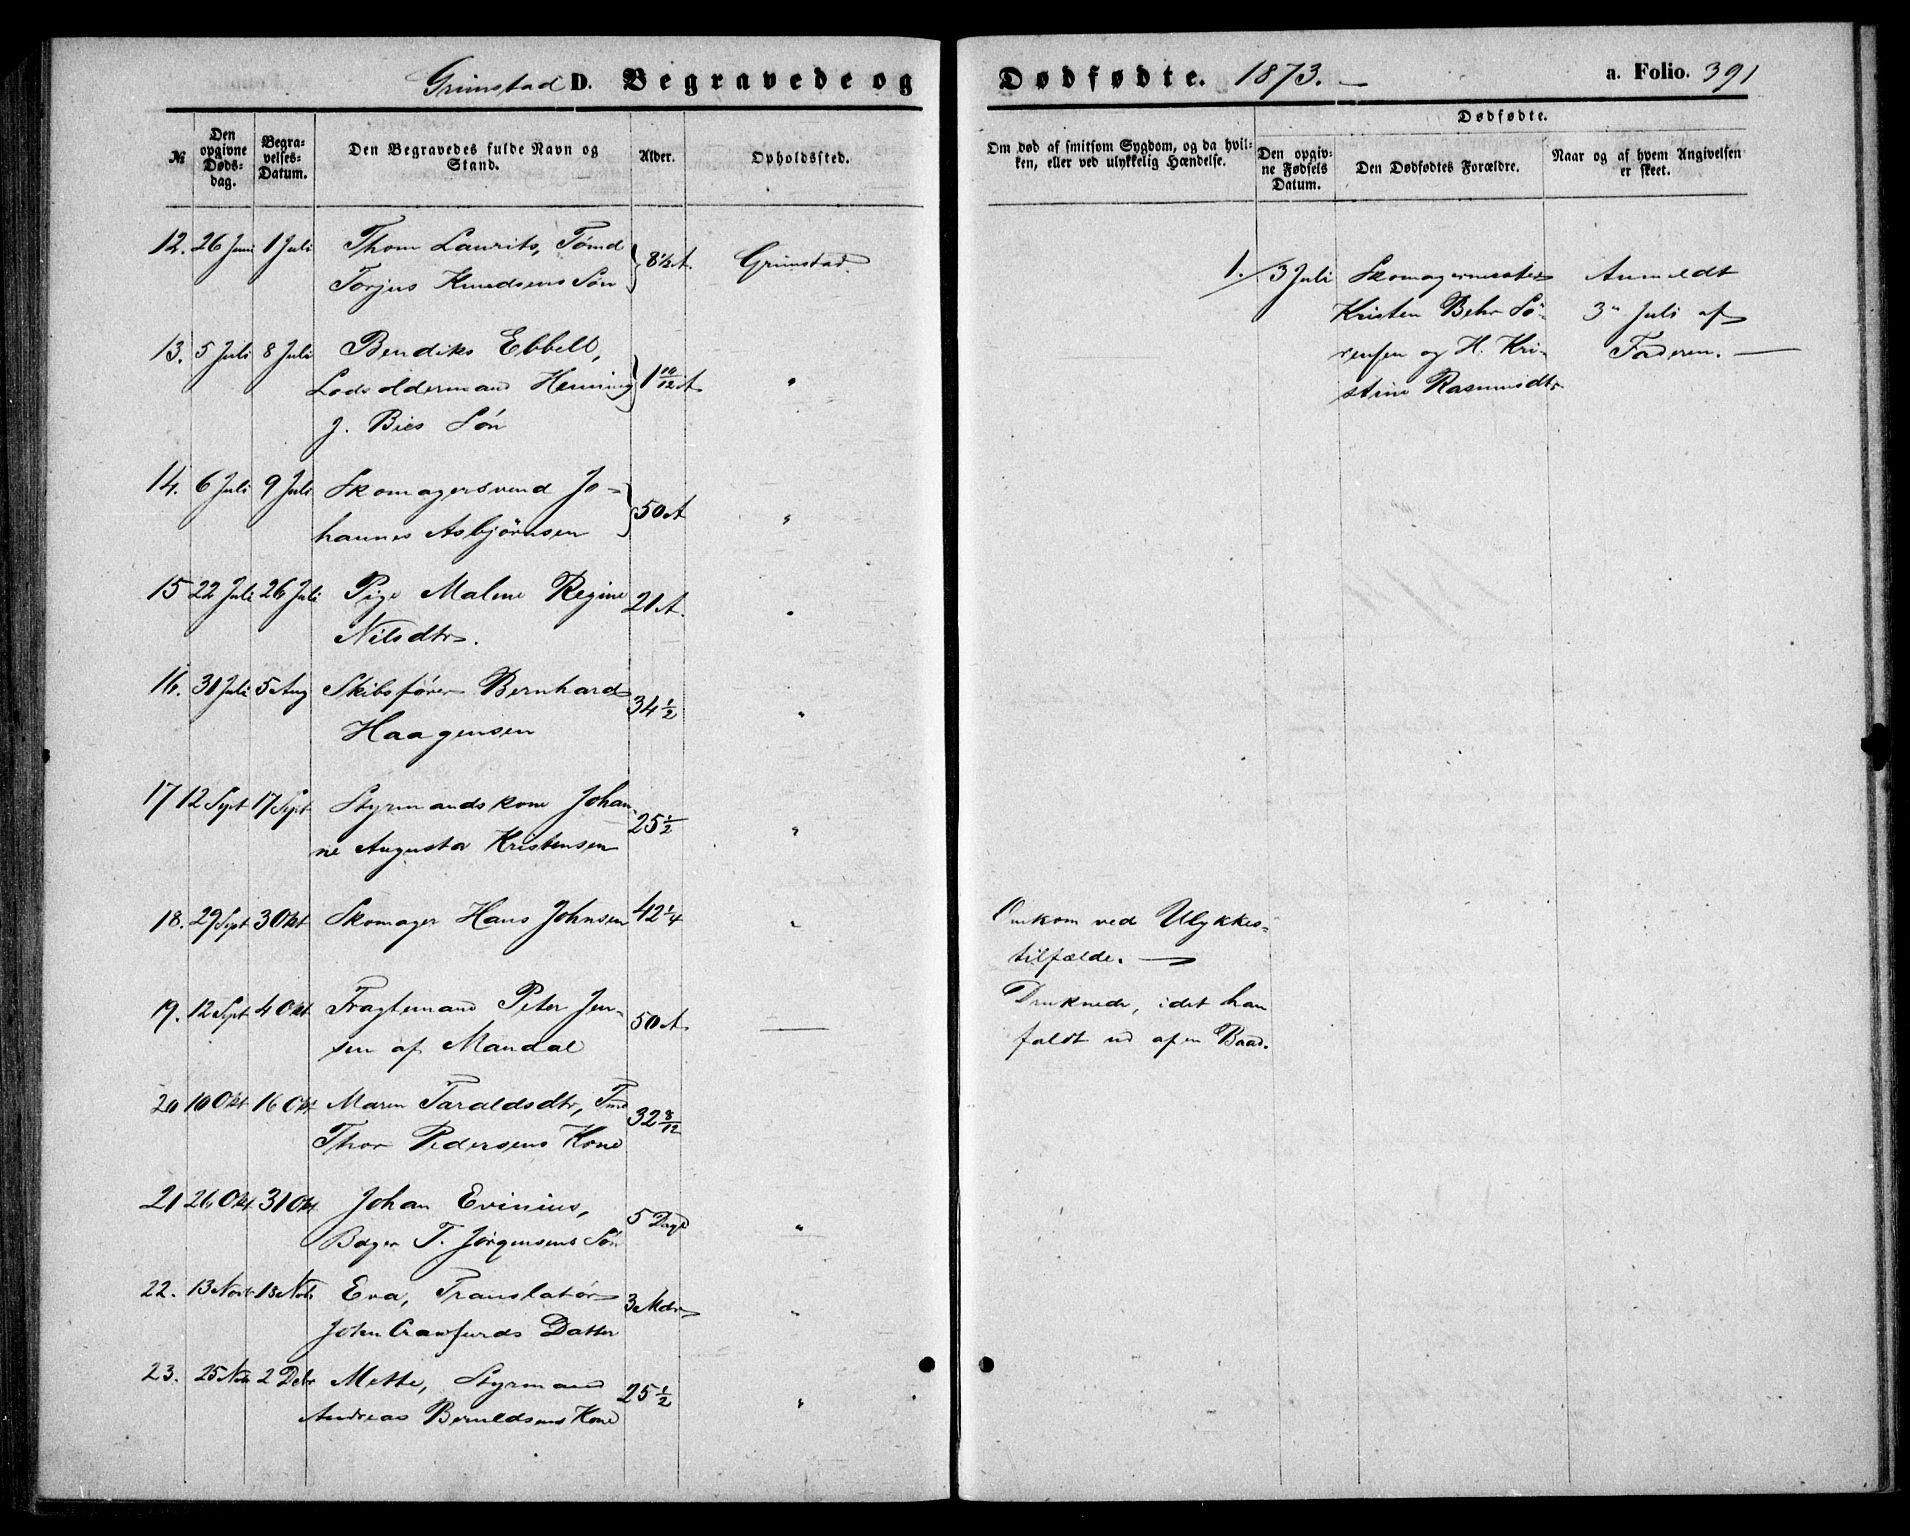 Grimstad D. Begravede og Dødfødte. 1873. — a. Folio. 391
№ Den opgivne Dødsdag. Begravelses-Datum. Den Begravedes fulde Navn og Stand. Alder. Opholdssted. Om død af smitsom Sygdom, og da hvilken, eller ved ulykkelig Hændelse. Dødfødte. Den opgivne Fødsels Datum. Den Dødfødtes Forældre. Naar og af hvem Angivelsen er skeet.
12. 26 Juni 1 Juli Thom Laurits, Tømd
Torjus Knudsens Søn } 8½ A. Grimstad.
13. 5 Juli 8 Juli Bendiks Ebbell,
Lodsoldermand Henning } 1 10/12 A "
J. Bies Søn
14. 6 Juli 9 Juli Skomagersvend Jo-
hannes Asbjørnsen } 50 A "
15 22 Juli 26 Juli Pige Malene Regine 21 A. "
Nilsdtr.
16. 31 Juli 5 Aug Skibsfører Bernhard 34 ½ "
Haagensen
17 12 Sept 17 Sept Styrmandskone Johan-
ne Augusta Kristensen 25 ½ "
18. 29 Sept 3 Okt Skomager Hans Johnsen 42 ¼ "
19. 12 Sept 4 Okt Fragtemand Peter Jen-
sen af Mandal 50 A. —
20 10 Okt 16 Okt Maren Taraldsdtr, Tmd
Thor Pedersens Kone 32 8/12
21 26 Okt 31 Okt Johan Evinius, 5 Dage
Bager T. Jørgensens Søn "
22. 13 Novb 18 Nov Eva, Translatør 3 Mdr
John Crawfurds Datter "
23. 25 Nov 2 Debr Mette, Styrmand 25 ½
Andreas Beruldsens Kone "
1. 3 Juli Skomagermester Anmeldt
Kristen Behr Sø- 3" Juli af
rensen og H. Kri- Faderen. —
stine Rasmusdtr
Omkom ved Ulykkes-
tilfælde. —
Druknede, idet han
faldt ud af en Baad.